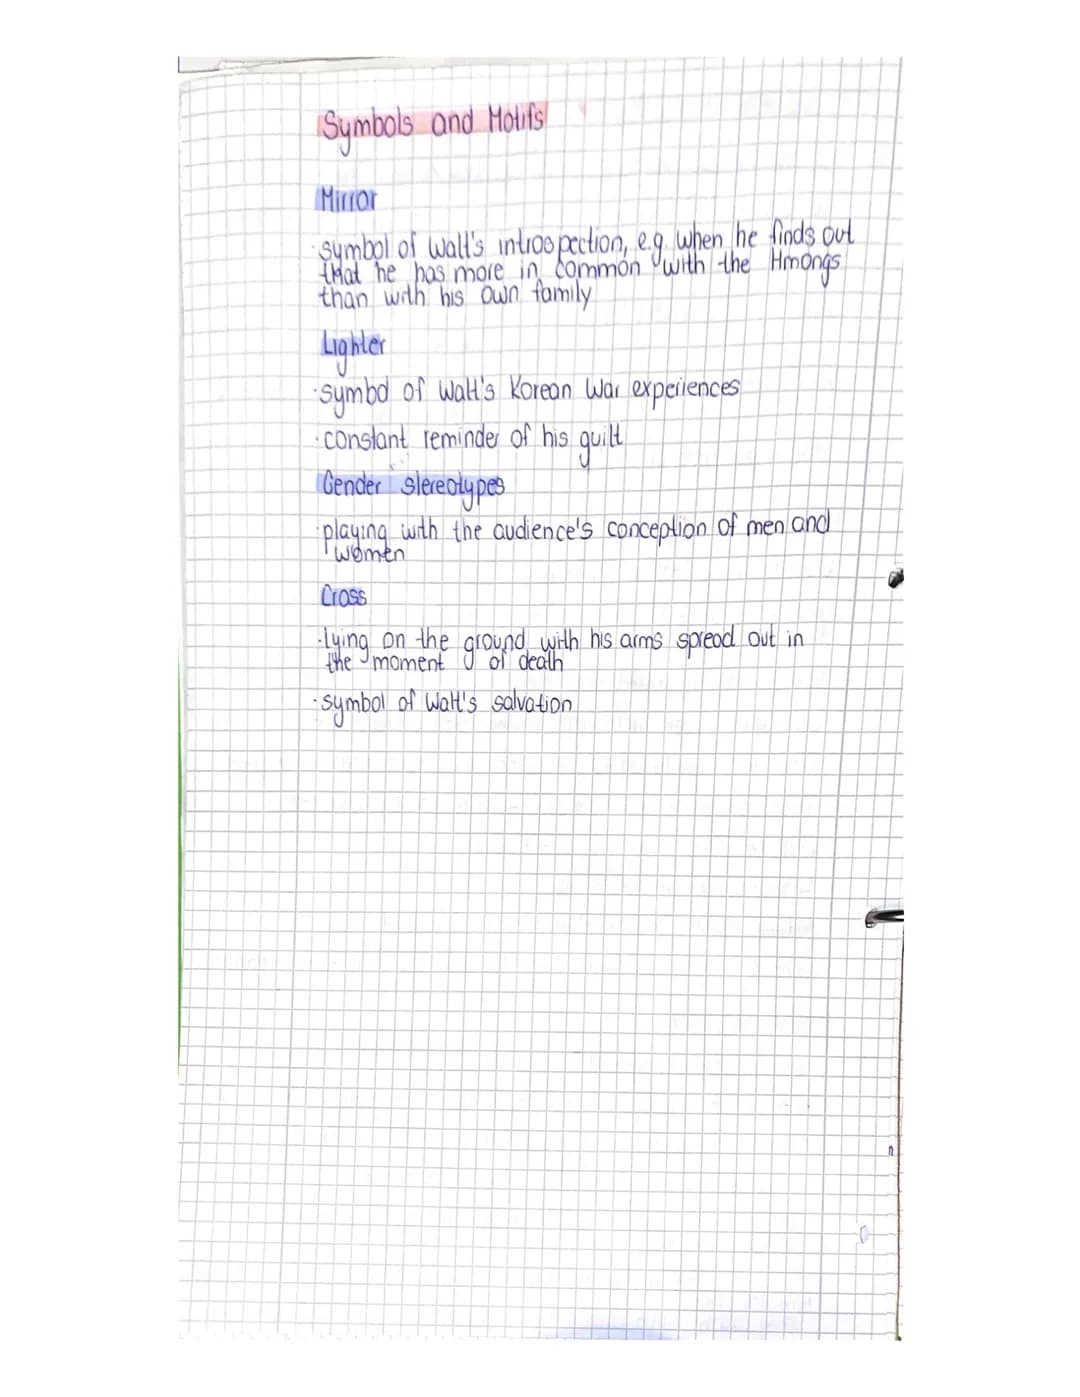 Symbols and Motifs
Mirror
· symbol of Walt's introspection, e.g. when he finds out
that he has more in common with the Hmongs
than with his own family
Lighter
· symbol of Walt's Korean War experiences
· constant reminder of his guilt
Gender stereotypes
· playing with the audience's conception of men and
women
Cross
· lying on the ground with his arms spread out in
the moment of death
· symbol of Walt's salvation